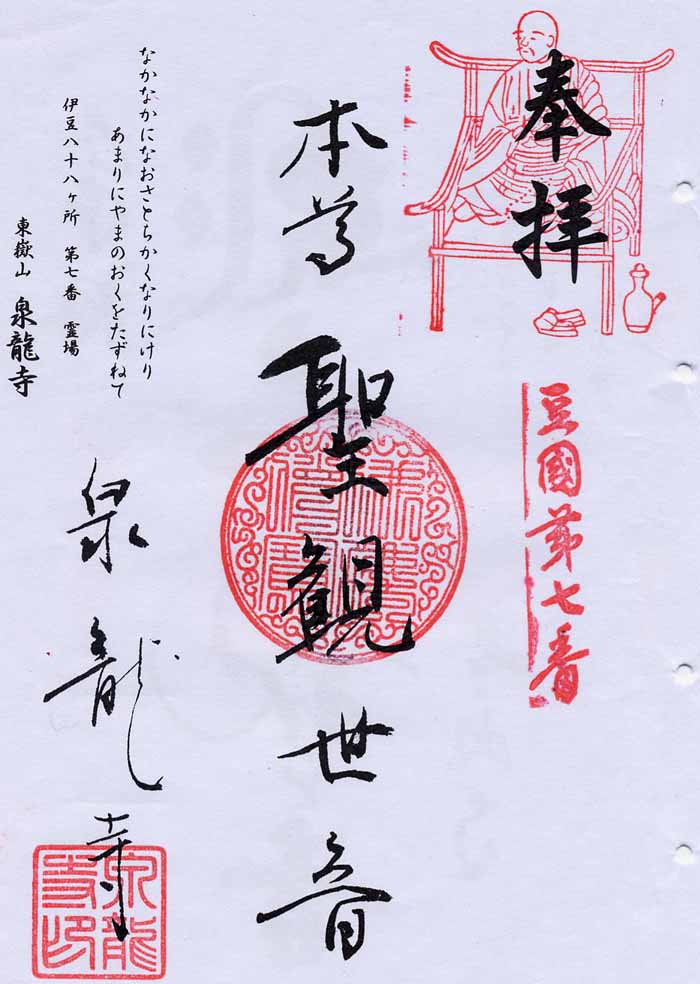 奉拝
豆國第七番
本尊
聖観世音
なかなかになおさとちかくなりにけり
あまりにやまのおくをたずねて
伊豆八十八ヶ所 第七番 霊場
東嶽山 泉龍寺
泉龍寺
泉龍寺印